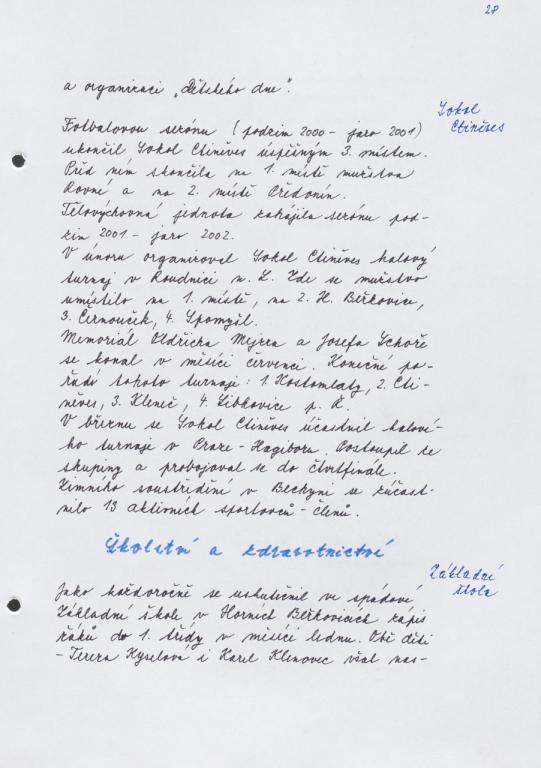 28
a organizaci „Dětského dne".
Sokol
Ctiněves
Fotbalovou sezónu (podzim 2000 - jaro 2001)
ukončil Sokol Ctiněves úspěšným 3. místem.
Před ním skončila na 1. místě mužstva
Rovné a na 2. místě Předonín.
Tělovýchovná jednota zahájila sezónu pod-
zim 2001 - jaro 2002.
V únoru organizoval Sokol Ctiněves halový
turnaj v Roudnici n. L. Zde se mužstvo
umístilo na 1. místě, na 2. H. Beřkovice,
3. Černouček, 4. Spomyšl.
Memoriál Oldřicha Mejzra a Josefa Schoře
se konal v měsíci červenci. Konečné po-
řadí tohoto turnaje: 1. Kostomlaty, 2. Cti-
něves, 3. Kleneč, 4. Libkovice p. Ř.
V březnu se Sokol Ctiněves účastnil halové-
ho turnaje v Praze - Hagiboru. Postoupil ze
skupiny a probojoval se do čtvrtfinále.
Zimního soustředění v Bechyni se zúčast-
nilo 13 aktivních sportovců - členů.
Školství a zdravotnictví
Základní
škola
Jako každoročně se uskutečnil ve spádové
Základní škole v Horních Beřkovicích zápis
žáků do 1. třídy v měsíci lednu. Obě děti
- Tereza Kyselová i Karel Klinovec však nas-